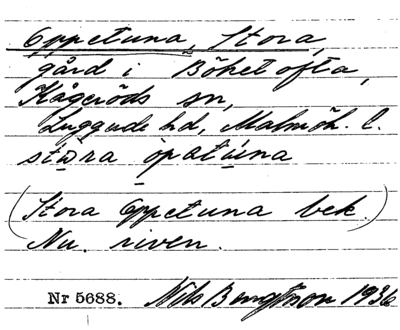 Oppetuna, Stora,
gård i Böketofta,
Kågeröds sn,
Luggude hd, Malmöh. l.
stɷra òpatúna
(Stora Oppetuna bek.)
Nu. riven.
Nr 5688. Nils Bengtsson 1936